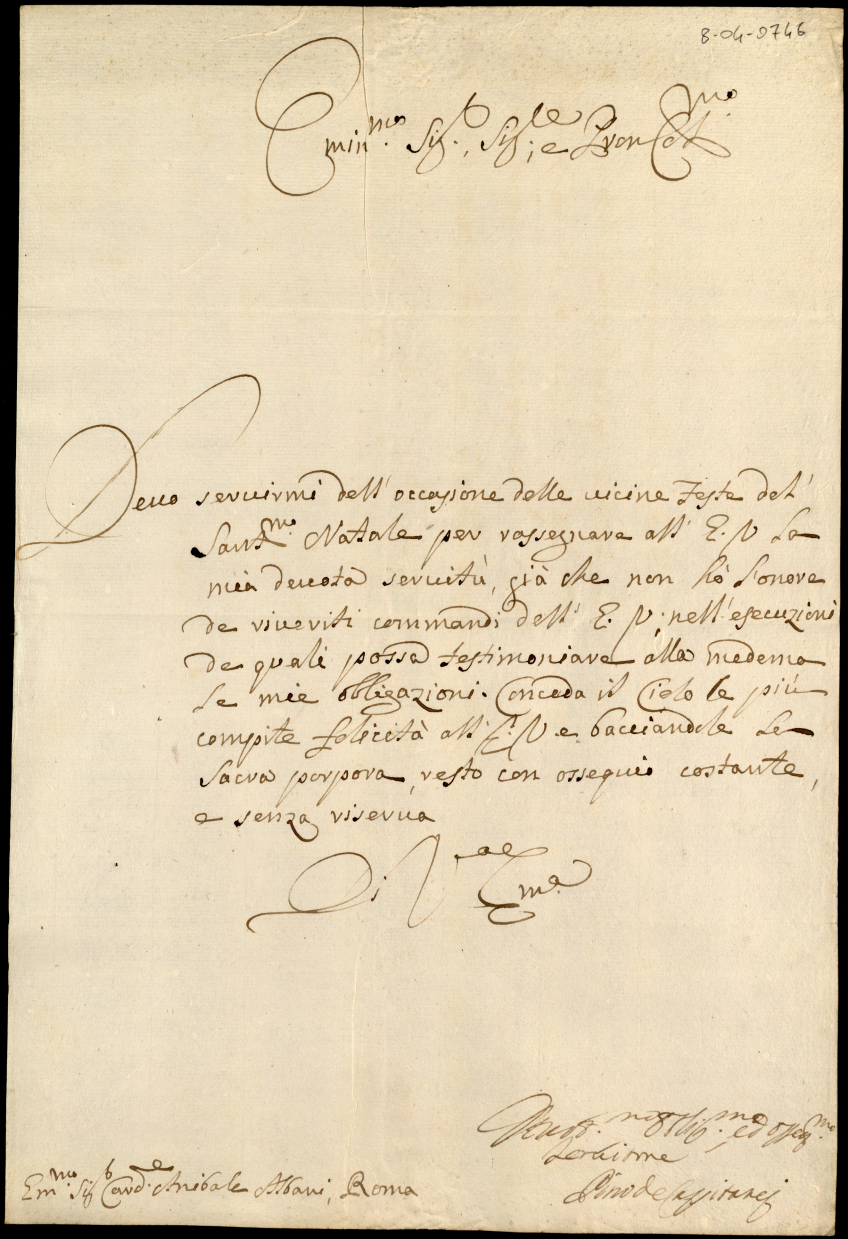 8-04-0746
Emin.mo Sig.r, Sig.re, e Pron Col.mo
Deuo seruirmi dell'occasione delle uicine Feste del'
Sant.mo Natale per rassegnare all' E. V. la
mia deuota seruitù, già che non hò l'onore
de riueriti commandi dell' E. V. nell'esecuzioni
de quali possa testimoniare alla medema
le mie obligazioni. Conceda il Cielo le più
compite felicità all' E. V. e bacciandole le
Sacra porpora, resto con ossequio costante,
e senza riserua
Di V.ae Em.a
Deuot.mo Obli.mo ed osseq.mo
Seruitore
Em.mo Sig.r Card.le Anibale Albani, Roma